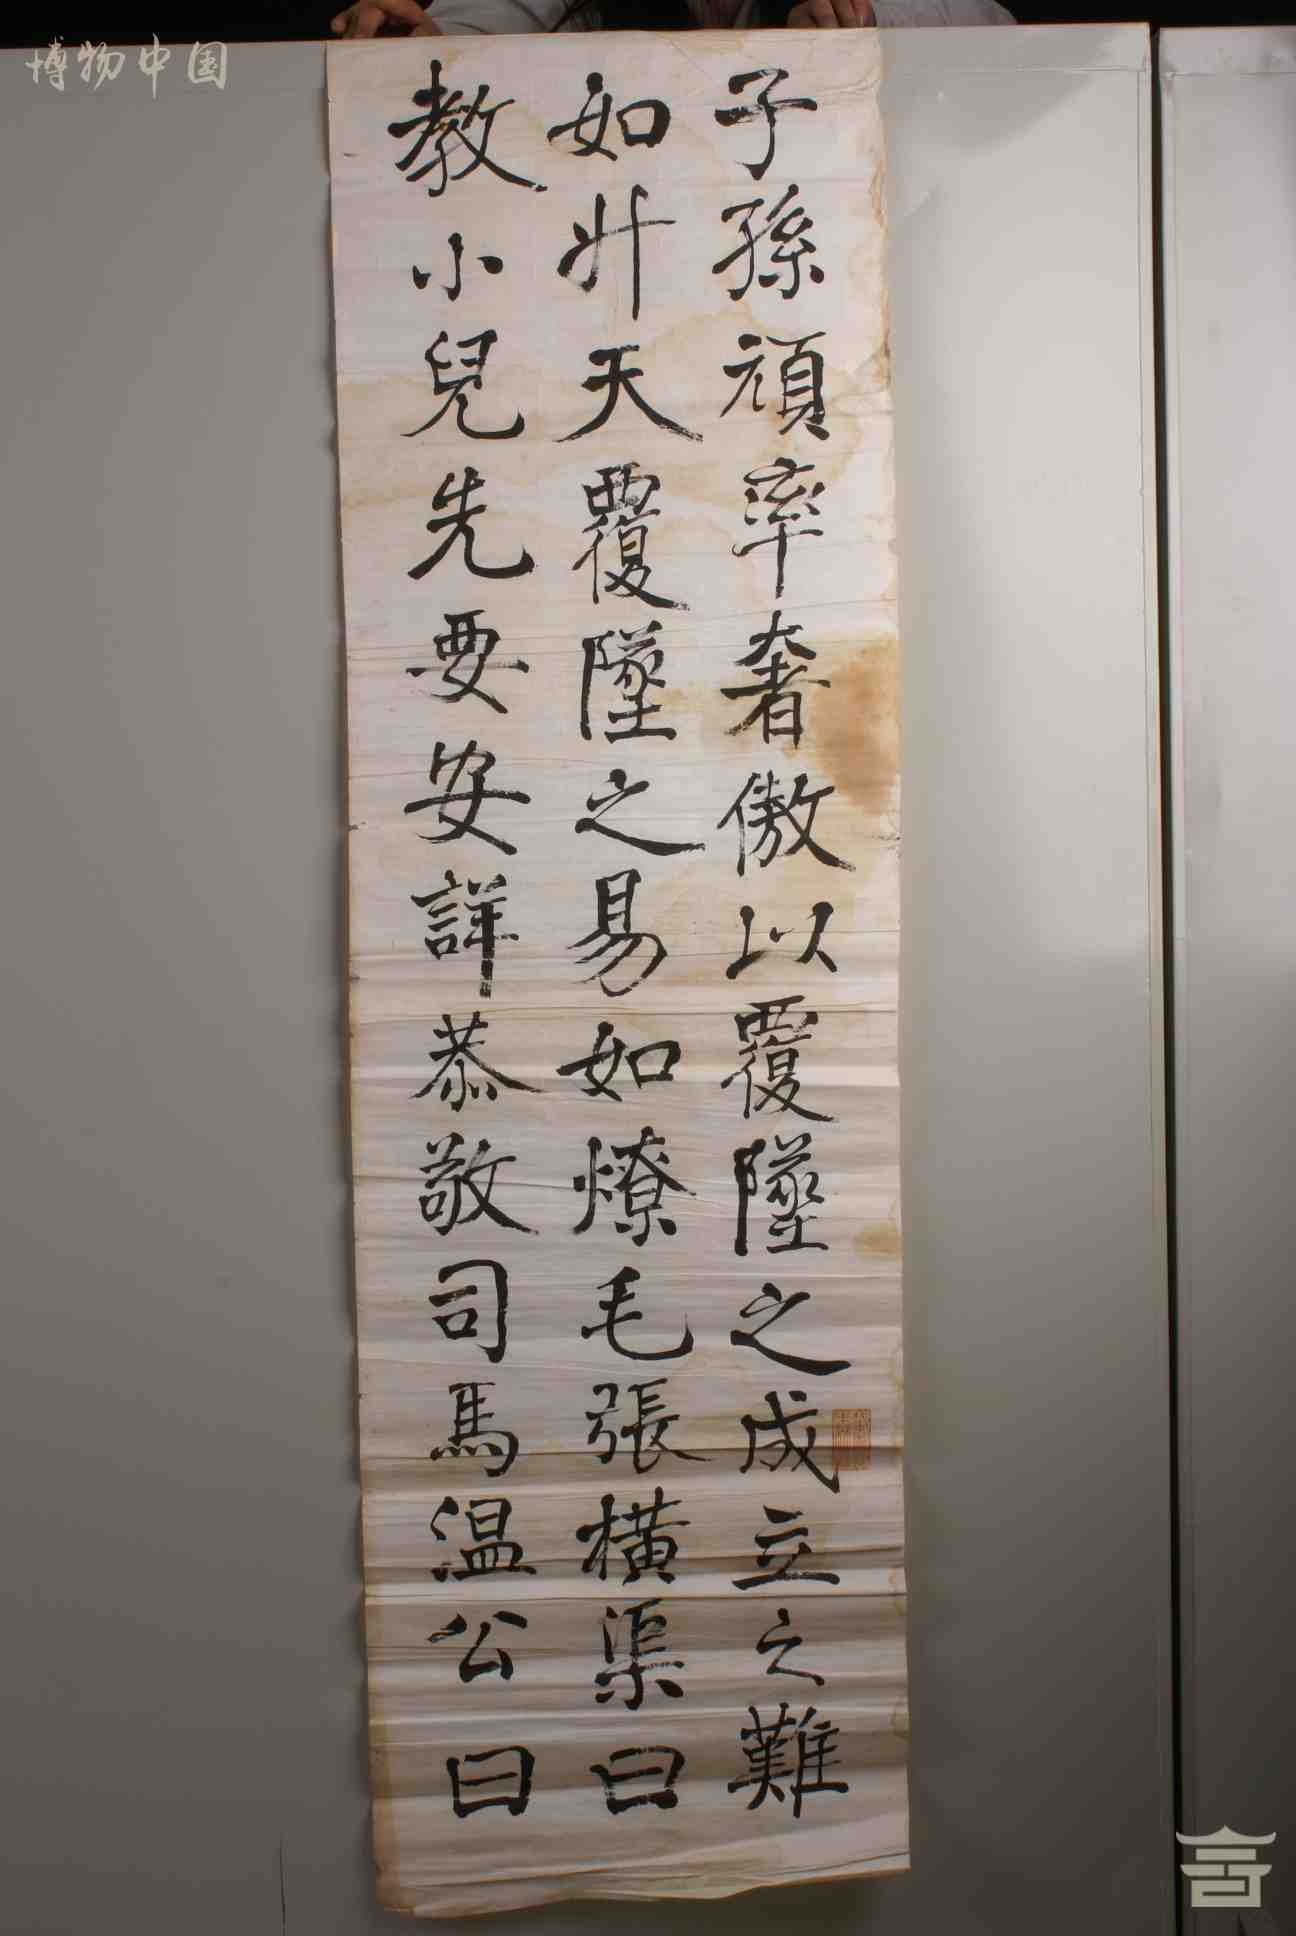 博物中国
子孫頑率奢傲以覆墜之成立之難
如升天覆墜之易如燎毛張橫渠曰
教小兒先要安詳恭敬司馬温公曰